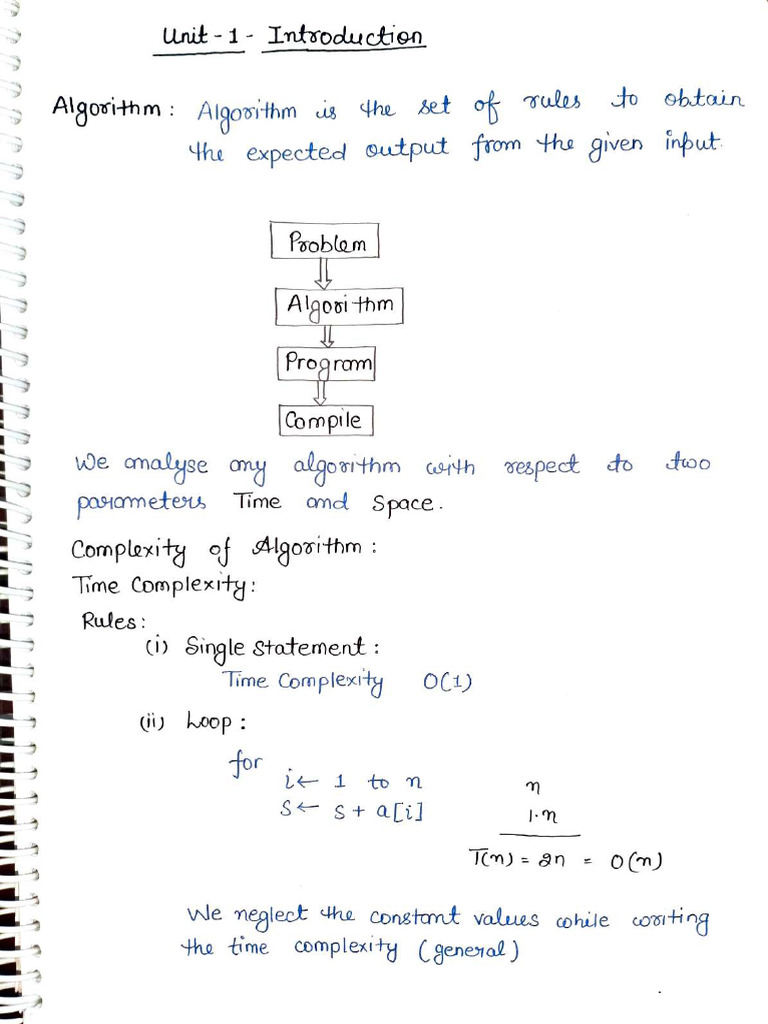 Unit - 1 - Introduction
Algorithm : Algorithm is the set of rules to obtain
the expected output from the given input.
Problem
Algorithm
Program
Compile
We analyse any algorithm with respect to two
parameters Time and Space.
Complexity of Algorithm :
Time Complexity:
Rules:
(i) Single Statement :
Time Complexity O(1)
(ii) Loop :
for
i← 1 to n n
S← S + a[i] 1·n
T(n) = 2n = O(n)
We neglect the constant values while writing
the time complexity (general)